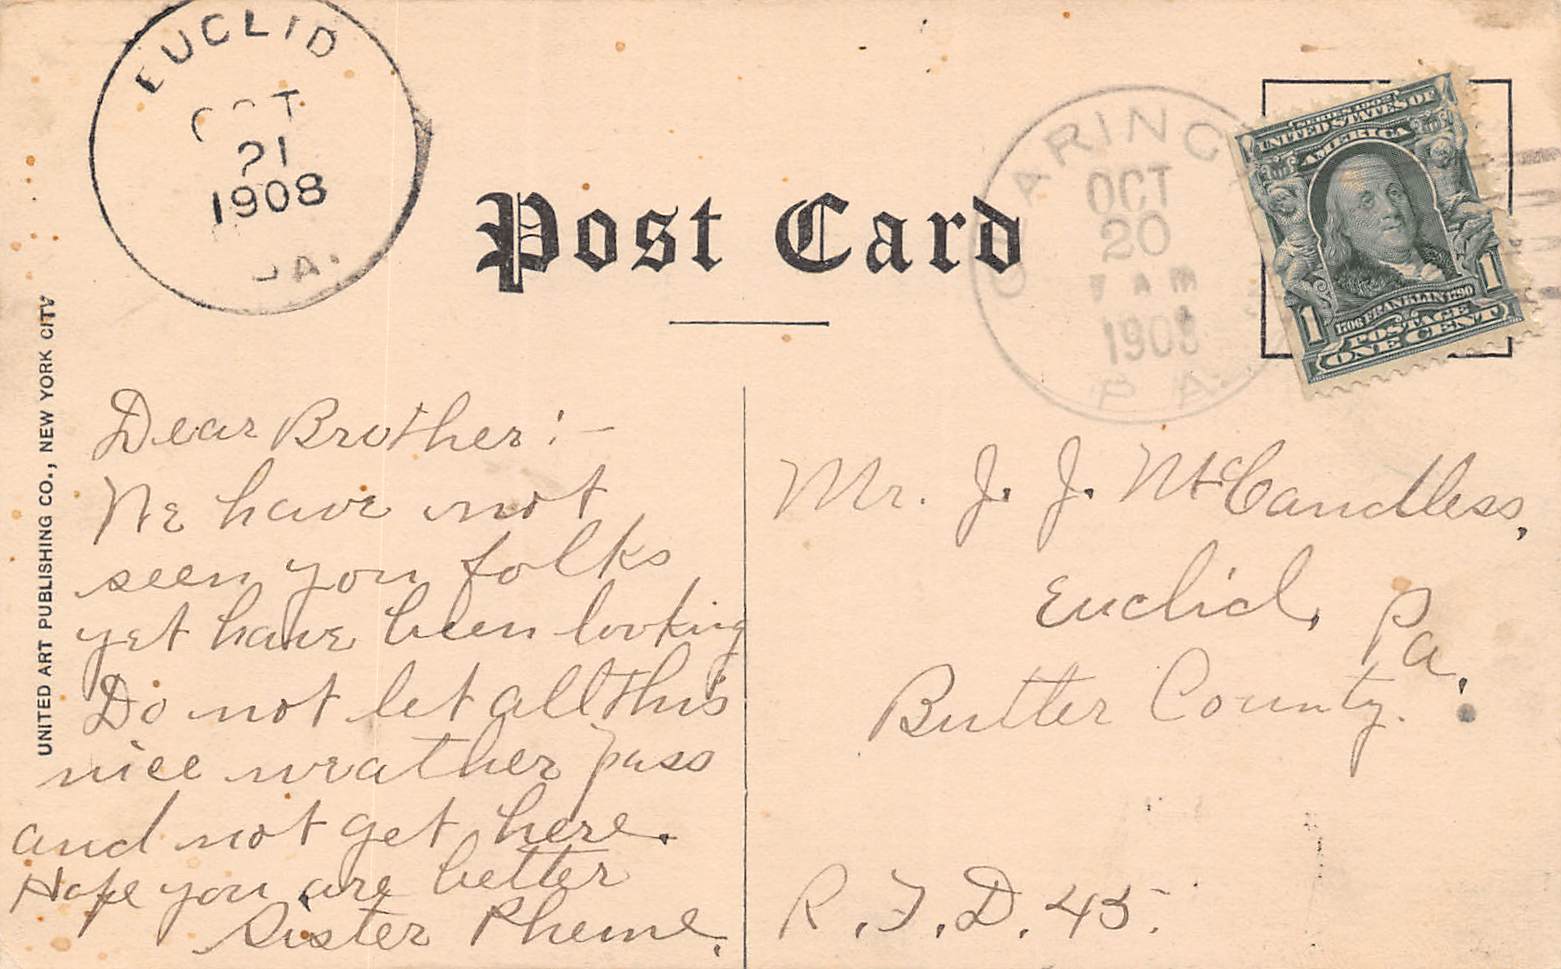 EUCLID
OCT
21
1908
PA.
Post Card
OCT
20
7 AM
1908
PA.
SERIES 1902
UNITED STATES OF
AMERICA
1706 FRANKLIN 1790
1 1
POSTAGE
ONE CENT
UNITED ART PUBLISHING CO., NEW YORK CITY
Dear Brother:—
We have not
seen you folks
yet have been looking
Do not let all this
nice weather pass
and not get here.
Hope you are better
Sister Pheme.
Mr. J. J. McCandless,
Euclid, Pa.
Butler County.
R.F.D. 45.